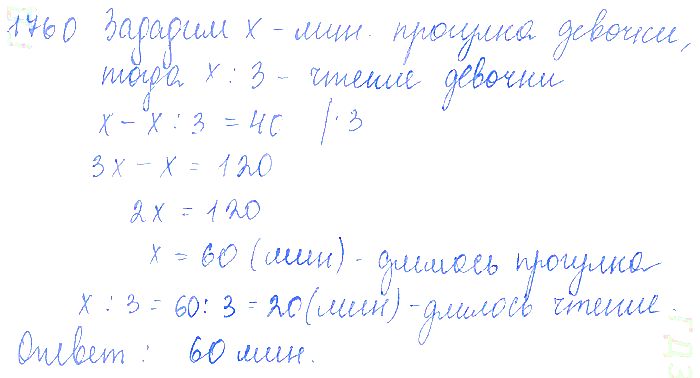 1760 Зададим x - мин. прогулка девочки,
тогда x : 3 - чтение девочки
x - x : 3 = 40 | · 3
3x - x = 120
2x = 120
x = 60 (мин) - длилась прогулка
x : 3 = 60 : 3 = 20 (мин) - длилось чтение.
Ответ : 60 мин.
ГДЗ